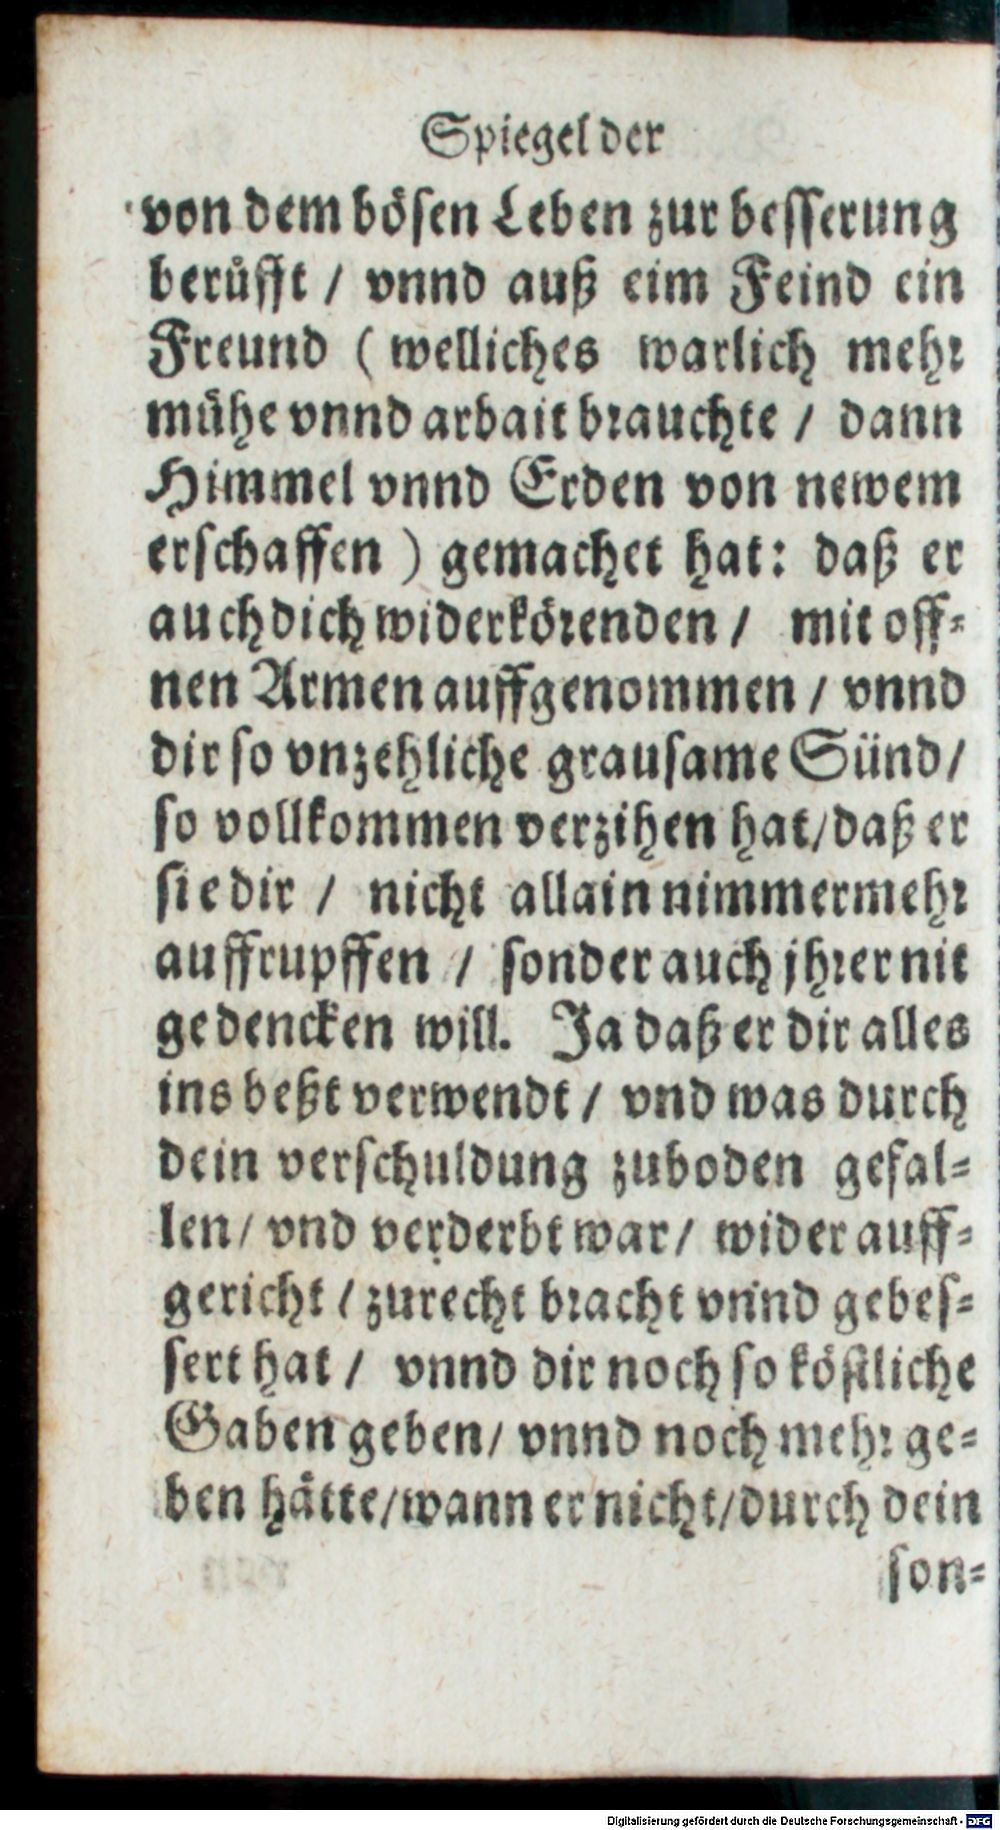 Spiegel der
von dem bösen Leben zur besserung
berůfft / vnnd auß eim Feind ein
Freund ( welliches warlich mehr
mühe vnnd arbait brauchte / dann
Himmel vnnd Erden von newem
erschaffen ) gemachet hat: daß er
auch dich widerkörenden / mit off-
nen Armen auffgenommen / vnnd
dir so vnzehliche grausame Sünd /
so vollkommen verzihen hat / daß er
sie dir / nicht allain nimmermehr
auffrupffen / sonder auch jhrer nit
gedencken will. Ja daß er dir alles
ins beßt verwendt / vnd was durch
dein verschuldung zuboden gefal-
len / vnd verderbt war / wider auff-
gericht / zurecht bracht vnnd gebes-
sert hat / vnnd dir noch so köstliche
Gaben geben / vnnd noch mehr ge-
ben hätte / wann er nicht / durch dein
son-
Digitalisierung gefördert durch die Deutsche Forschungsgemeinschaft - DFG